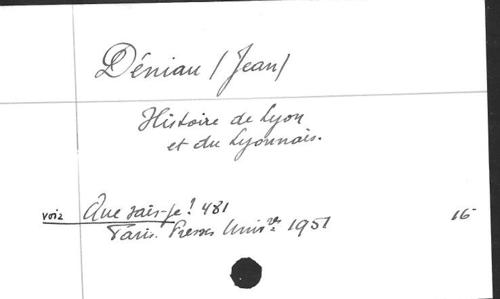 Déniau (Jean)
Histoire de Lyon
et du Lyonnais.
voir Que sais-je! 481
Paris. Presses Univ.res 1951
16-